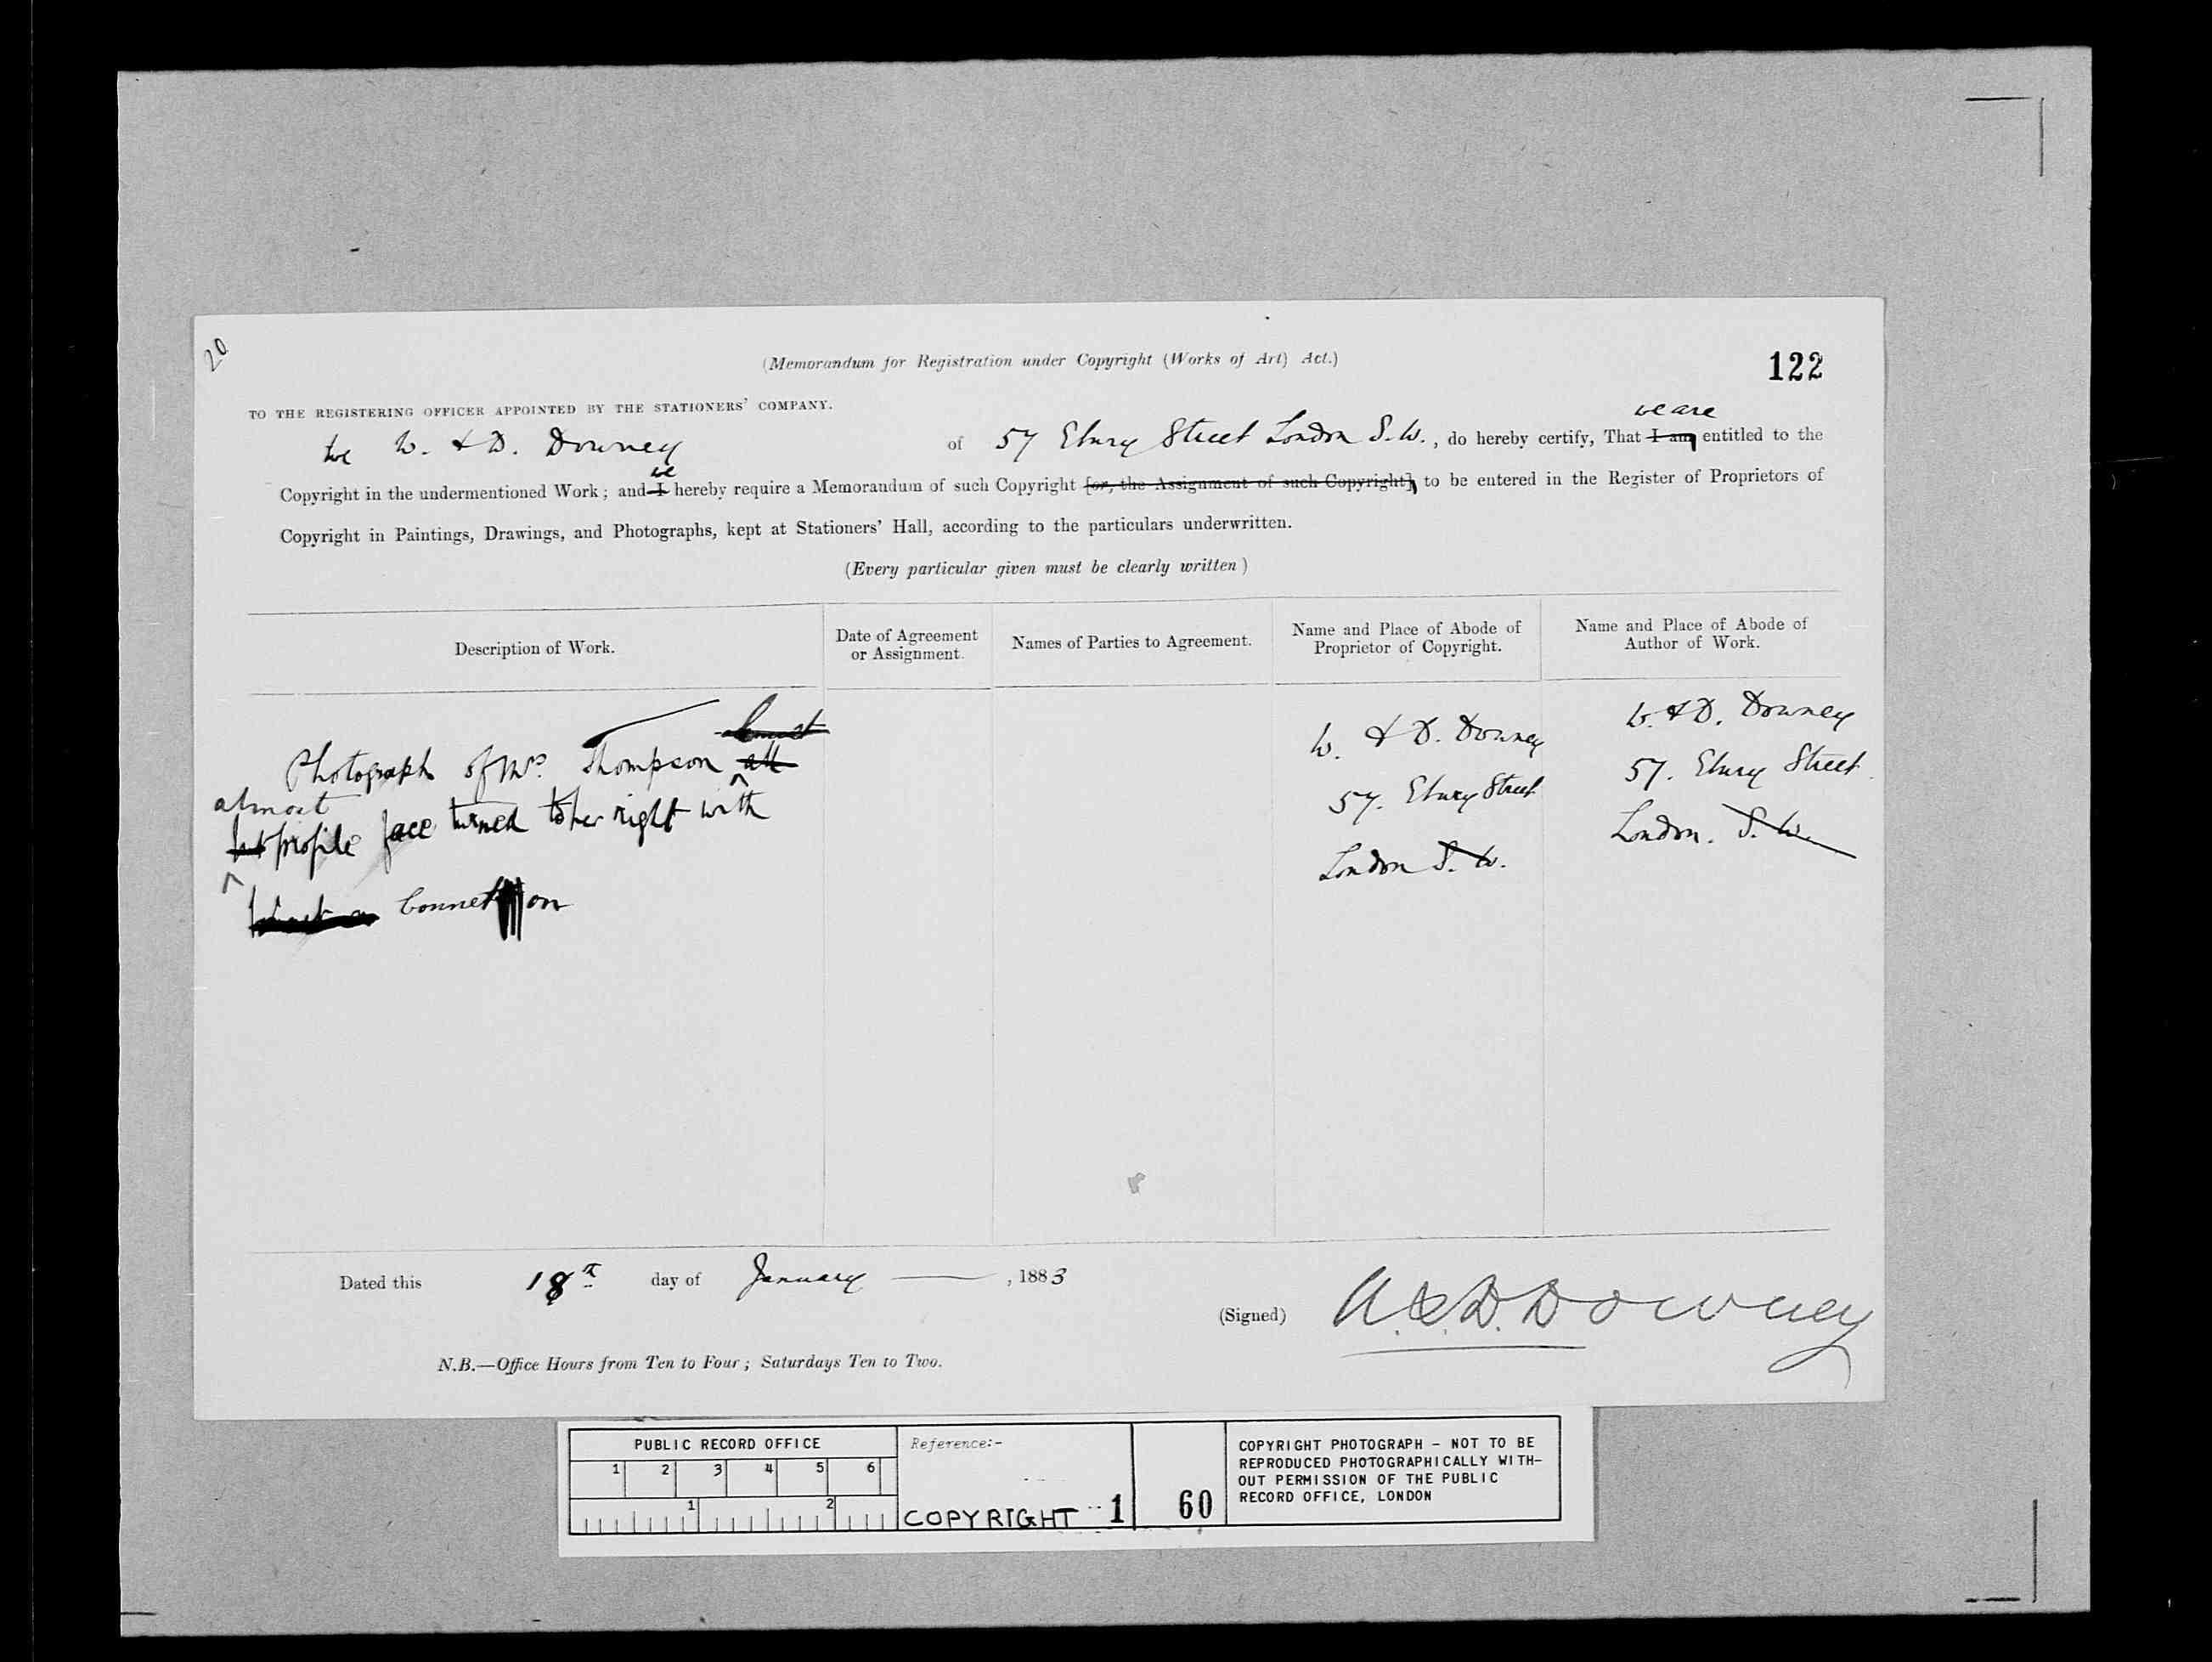 20
(Memorandum for Registration under Copyright (Works of Art) Act.)
122
TO THE REGISTERING OFFICER APPOINTED BY THE STATIONERS' COMPANY.
we are
We W. & D. Downey of 57 Ebury Street London S.W., do hereby certify, That I am entitled to the
we
Copyright in the undermentioned Work; and I hereby require a Memorandum of such Copyright [or, the Assignment of such Copyright], to be entered in the Register of Proprietors of
Copyright in Paintings, Drawings, and Photographs, kept at Stationers' Hall, according to the particulars underwritten.
(Every particular given must be clearly written)
Description of Work.
Date of Agreement
or Assignment.
Names of Parties to Agreement.
Name and Place of Abode of
Proprietor of Copyright.
Name and Place of Abode of
Author of Work.
Photograph of Mrs. Thompson
almost
profile face turned to her right with
bonnet on
W. & D. Downey
57. Ebury Street
London S.W.
W. & D. Downey
57. Ebury Street
London. S.W.
Dated this 18th day of January , 1883
(Signed) W. & D. Downey
N.B.—Office Hours from Ten to Four; Saturdays Ten to Two.
PUBLIC RECORD OFFICE
1 2 3 4 5 6
1 2
Reference:-
COPYRIGHT 1 60
COPYRIGHT PHOTOGRAPH - NOT TO BE
REPRODUCED PHOTOGRAPHICALLY WITH-
OUT PERMISSION OF THE PUBLIC
RECORD OFFICE, LONDON